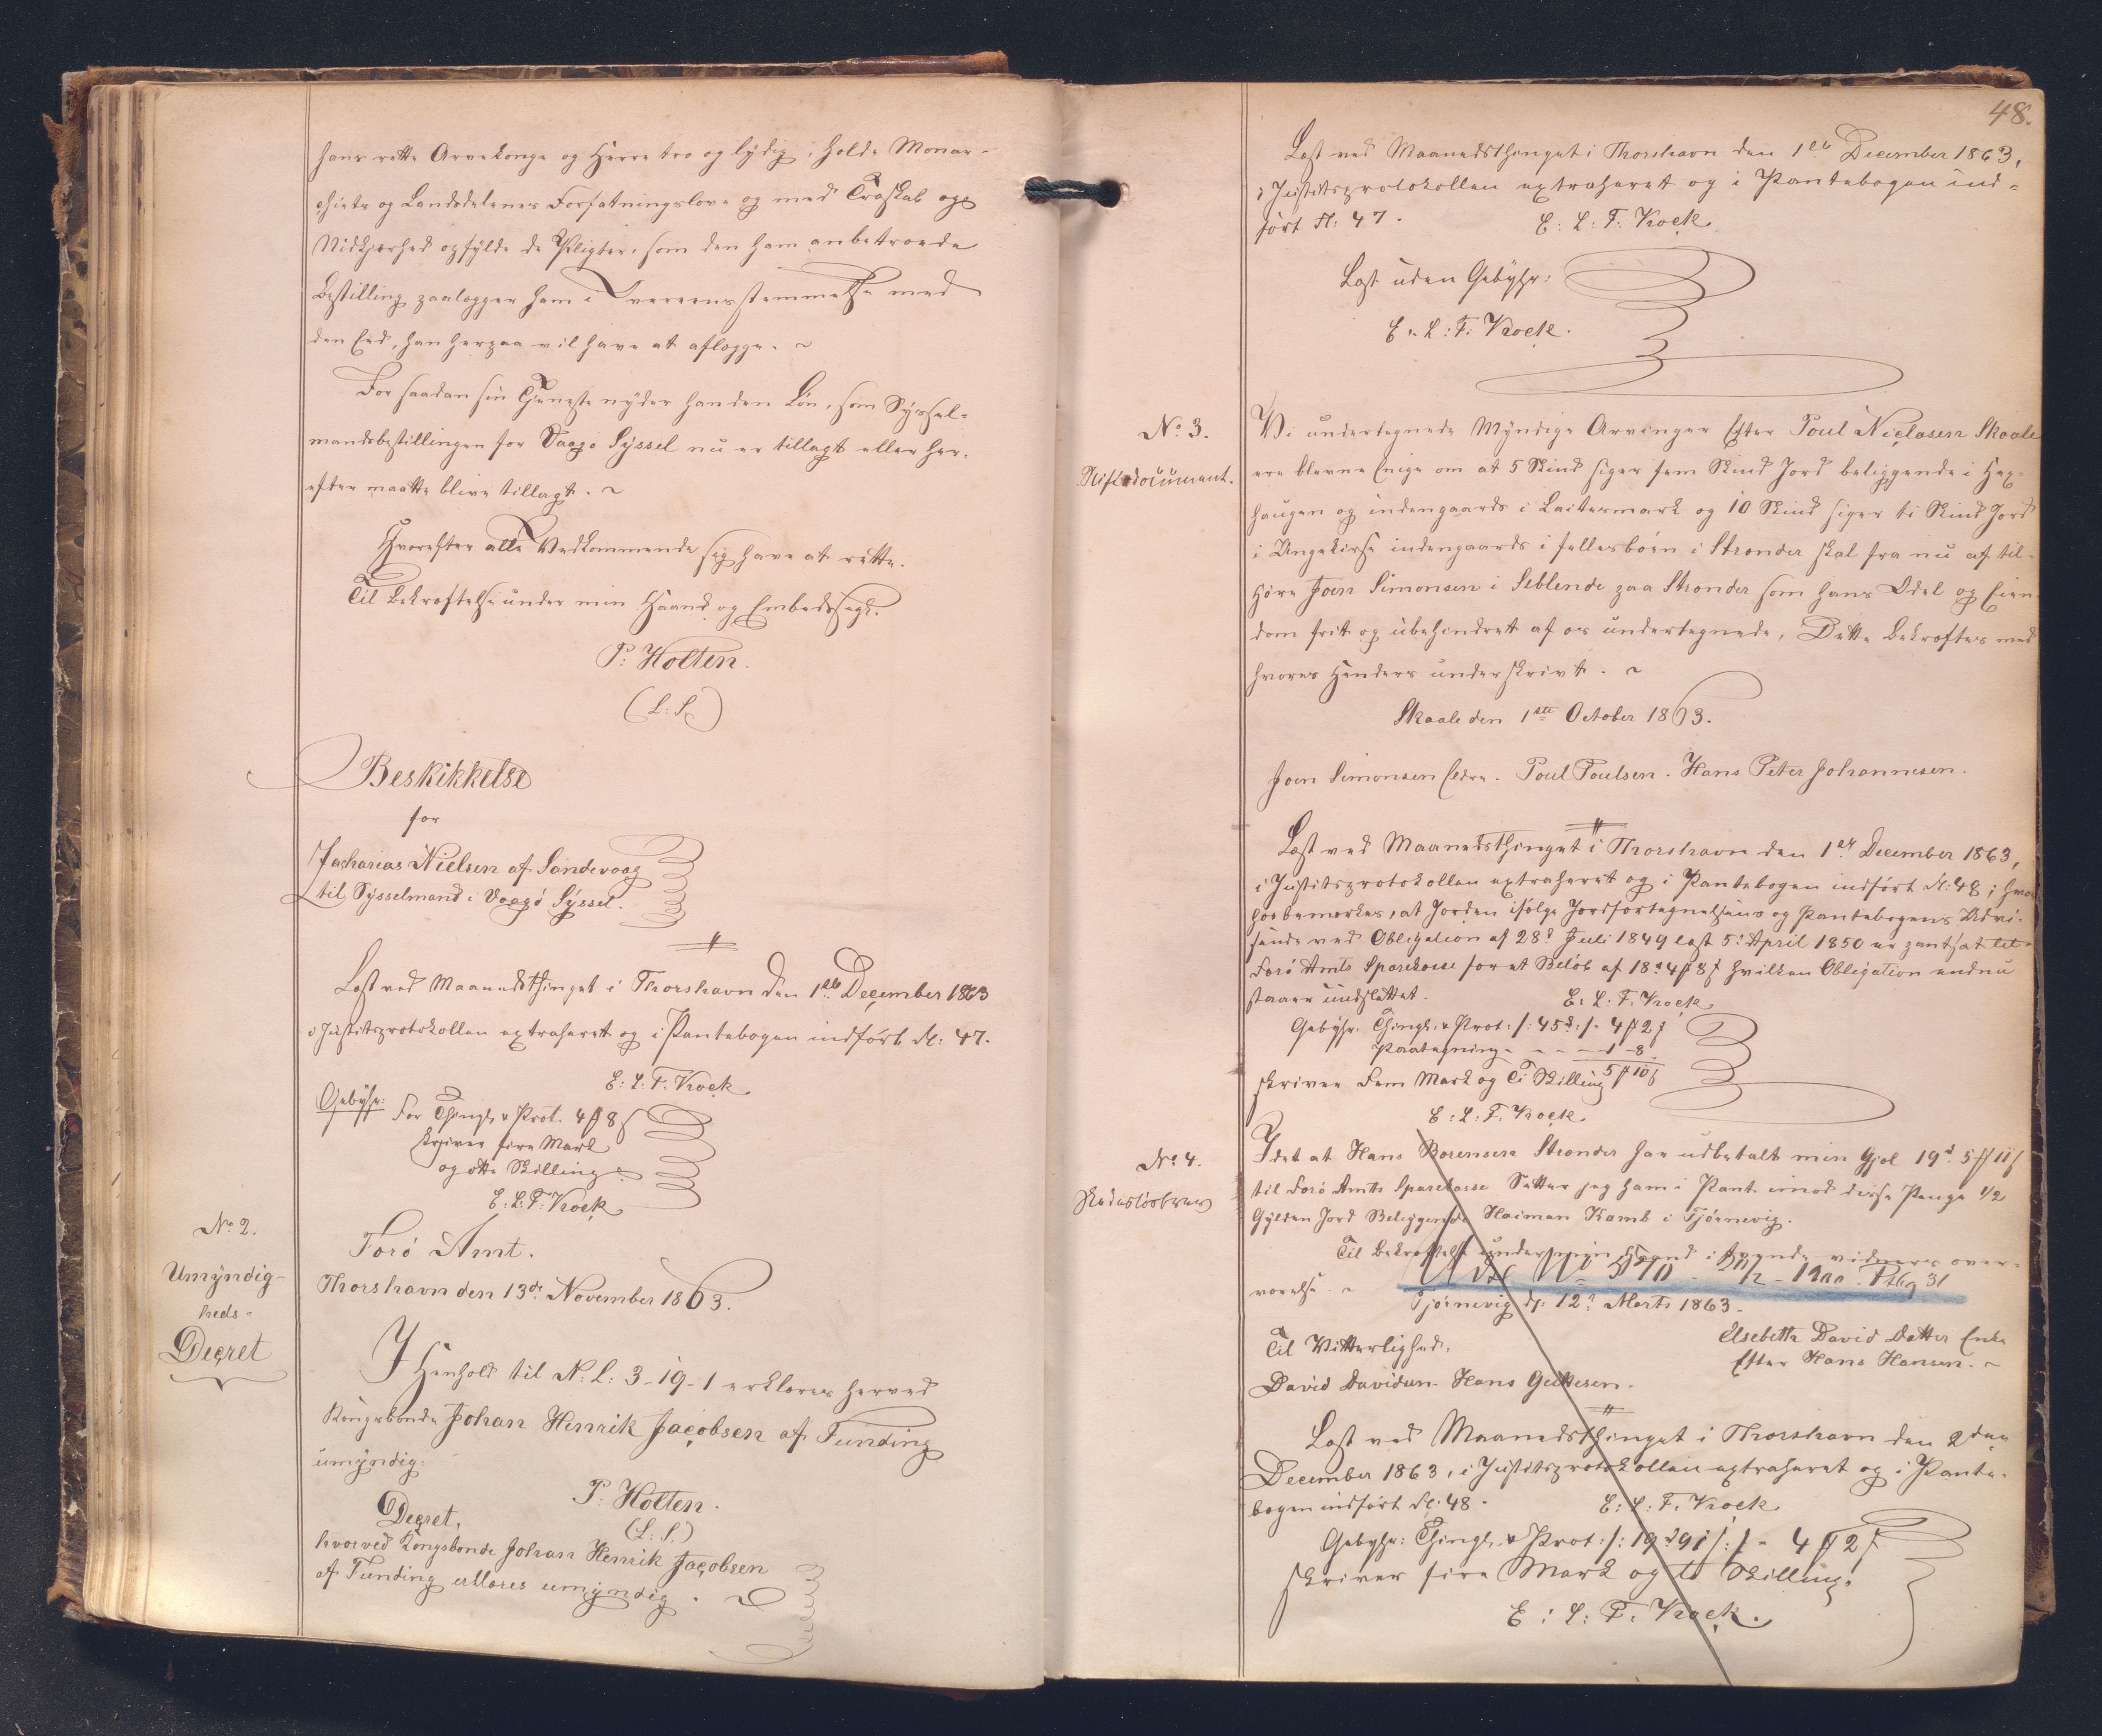 hans rette Arvekonge og Herre tro og lydig, holde Monar-
chiets og Landsdelenes Forfatningslove og med Troskab og
Nidkjærhed opfylde de Pligter, som den ham anbetroede
Bestilling paalægger ham i Overeensstemmelse med
den Eed, han herpaa vil have at aflægge. ~
For saadan sin Tjeneste nyder han den Løn, som Syssel-
mandsbestillingen for Vaagø Syssel nu er tillagt eller her-
efter maatte blive tillagt. ~
Hvorefter alle Vedkommende sig have at rette.
Til Bekræftelse under min Haand og Embedssegl.
P. Holten.
(L. S.)
Beskikkelse
for
Zacharias Nielsen af Sandevaag
til Sysselmand i Vaagø Syssel.
Læst ved Maanedsthinget i Thorshavn den 1ste December 1863
i Justitsprotokollen extraheret og i Pantebogen indført Fl: 47.
E: L: F. Krock
Gebyhr: For Thingl. & Prot. 4 ₰ 8 ß
skriver fire Mark
og otte Skilling
E: L: F. Krock
No 2.
Umyndig-
heds-
Decret
Færø Amt.
Thorshavn den 13de November 1863.
I Henhold til N: L: 3-19-1 erklæres herved
Kongsbonde Johan Henrik Jacobsen af Funding
umyndig.
P. Holten.
(L. S.)
Decret,
hvorved Kongsbonde Johan Henrik Jacobsen
af Funding erklæres umyndig.
48.
Læst ved Maanedsthinget i Thorshavn den 1ste December 1863,
i Justitsprotokollen extraheret og i Pantebogen ind-
ført Fl: 47.
E: L: F: Krock
Læst uden Gebyhr:
E: L: F: Krock.
No 3.
Skiftedocument.
Vi undertegnede Myndige Arvinger efter Poul Niclasen Skaale
ere blevne enige om at 5 Skind siger fem Skind Jord beliggende i
haugen og indengaards i Laitesmark og 10 Skind siger ti Skind Jord
i indengaards i fellesbøen i Strender skal fra nu af til-
høre Joen Simonsen i Seblende paa Strender som hans Odel og Eien
dom frit og ubehindrett af os undertegnede, Dette Bekræftes med
hvores Henders underskrivt. ~
Skaale den 1ste October 1863.
Joen Simonsen Eldre. Poul Poulsen. Hans Peter Johannesen.
Læst ved Maanedsthinget i Thorshavn den 1ste December 1863,
i Justitsprotokollen extraheret og i Pantebogen indført Fl: 48; hvor
hos bemærkes, at Jorden ifølge Jordfortegnelsens og Pantebogens Udvi-
sende ved Obligation af 28d Juli 1849 læst 5. April 1850 er pantsat til
Færø Amts Sparekasse for et Beløb af 18d 4 ₰ 8 ß hvilken Obligation endnu
staaer uudslettet.
E: L: F. Krock
Gebyhr. Thingl. & Prot: /: 45d :/ - 4 ₰ 2 ß
Paategning - - - - 1 - 8
skriver Fem Mark og Ti Skilling 5 ₰ 10 ß
E: L: F. Krock.
No 4.
Skadesløsbrev
I det at Hans Strender har udbetalt min Gjæl 19d 5 ₰ 11 ß
til Færø Amts Sparekasse Setter jeg ham i Pant imod disse Penge 1/2
Gylden Jord Beliggende Haiman Kamb i Tjørnevig.
Til Bekræftelse under min Haand i tvende vidners over-
værelse. ~
Tjørnevig d: 12d Marts 1863.
Til Vitterlighed.
Elsebeth David Datter Enke
Efter Hans Hansen. ~
David Davidsen. Hans
Læst ved Maanedsthinget i Thorshavn den 2den
December 1863, i Justitsprotokollen extraheret og i Pante-
bogen indført Fl: 48.
E: L: F. Krock
Gebyhr: Thingl. & Prot: /: 19d 91 ß :/ - 4 ₰ 2 ß
skriver fire Mark og to Skilling.
E: L: F. Krock.